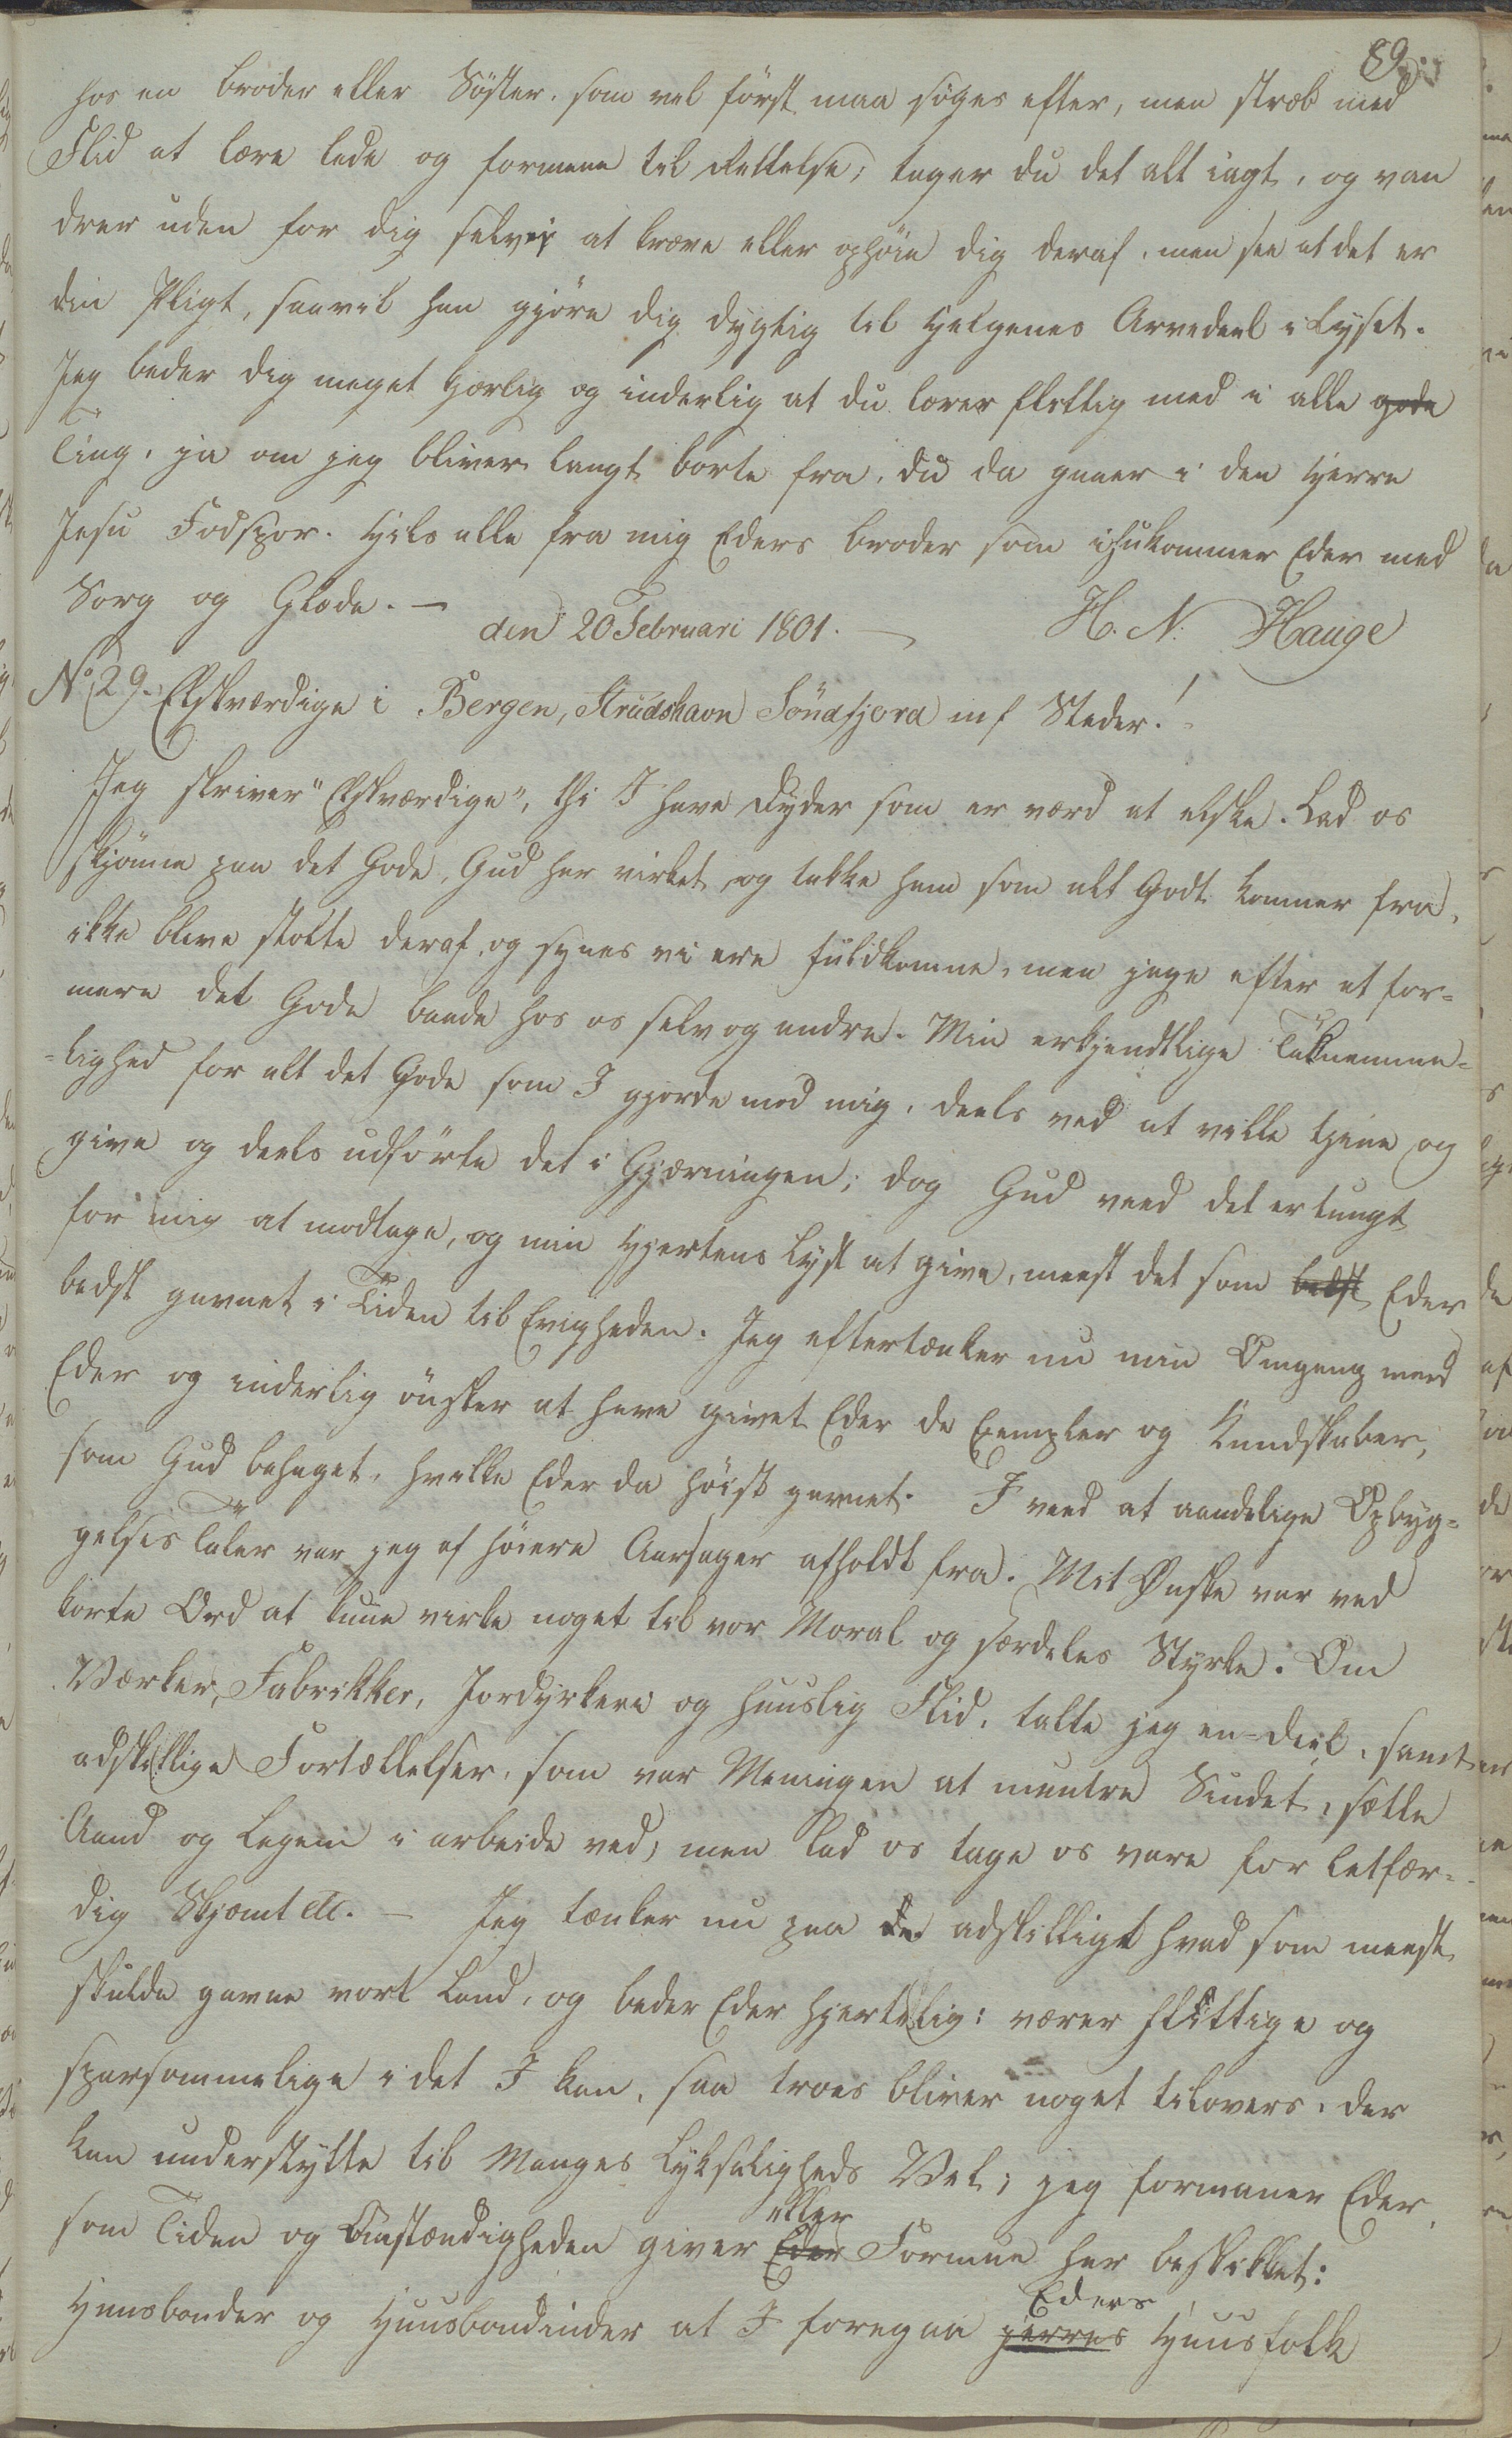 89.
hos en broder eller Söster, som vel först maa söges efter, men stræb med
Flid at lære lede og formane til Rettelse; tager du det alt iagt, og van
drer uden for dig selv at kræve eller ophöie dig deraf, men see at det er
din Pligt, saa vil han gjöre dig dygtig til Helgenes Arvedeel i Lyset.
Jeg beder dig meget kjærlig og inderlig at du lærer flittig med i alle gode
Ting, ja om jeg bliver langt borte fra, du da gaaer i den Herre
Jesu Fodspor. Hils alle fra mig Eders broder som ihukommer Eder med
Sorg og Glæde. —
den 20 Februari 1801. — H. N. Hauge
No 29. Elskværdige i Bergen, Strudshavn Söndfjord m f Steder!
Jeg skriver "Elskværdige", thi I have Dyder som er værd at elske. Lad os
skjönne paa det Gode, Gud har virket, og takke ham som alt Godt kommer fra,
ikke blive stolte deraf, og synes vi ere fuldkomne, men jage efter at for-
mere det Gode baade hos os selv og andre. Min erkjendtlige Taknemme-
-lighed for alt det Gode som I gjorde mod mig, deels ved at ville tjene og
give og deels udförte det i Gjærningen; dog Gud veed det er tungt
for mig at modtage, og min Hjertens Lyst at give, meest det som bedst Eder
bedst gavnet i Tiden til Evigheden. Jeg eftertænker nu min Omgang med
Eder og inderlig önsker at have givet Eder de Exempler og Kundskaber,
som Gud behaget, hvilke Eder da höist gavnet. I veed at aandelige Opbyg-
gelses Taler var jeg af höiere Aarsager afholdt fra. Mit Önske var ved
korte Ord at kune virke noget til vor Moral og særdeles Styrke. Om
Værker, Fabrikker, Jordyrkeri og huuslig Flid, talte jeg en-deel, samt
adskillige Fortællelser, som var Meningen at muntre Sindet, sætte
Aand og Legem i arbeide ved, men lad os tage os vare for letfær-
dig Skjæmt etc. — Jeg tænker nu paa de adskilligt hvad som meest
skulde gavne vort Land, og beder Eder hjertelig: værer flittige og
sparsommelige i det I kan, saa troes bliver noget tilovers, der
kan understytte til Manges Lyksaligheds Vel; jeg formaner Eder,
som Tiden og Omstændigheden giver Eder eller Formue har beskikket:
Huusbonder og Huusbondinder at I foregaa Eders Huusfolk